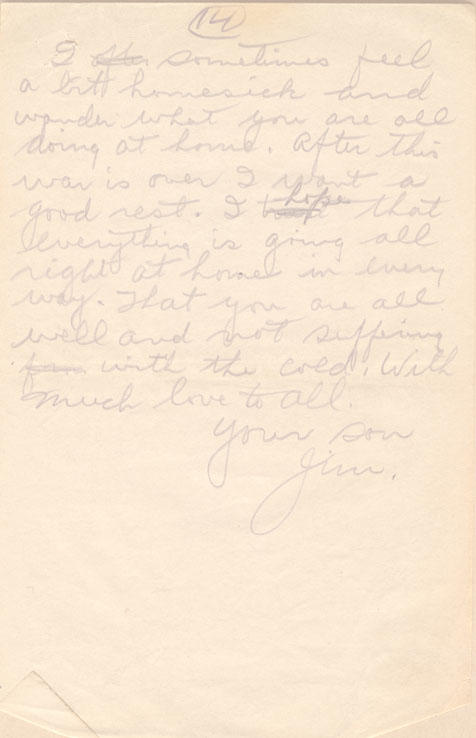 14
I sometimes feel
a bit homesick and
wonder what you are all
doing at home. After this
war is over I want a
good rest. I hope that
everything is going all
right at home in every
way. That you are all
well and not suffering
with the cold. With
much love to all.
Your son
Jim.